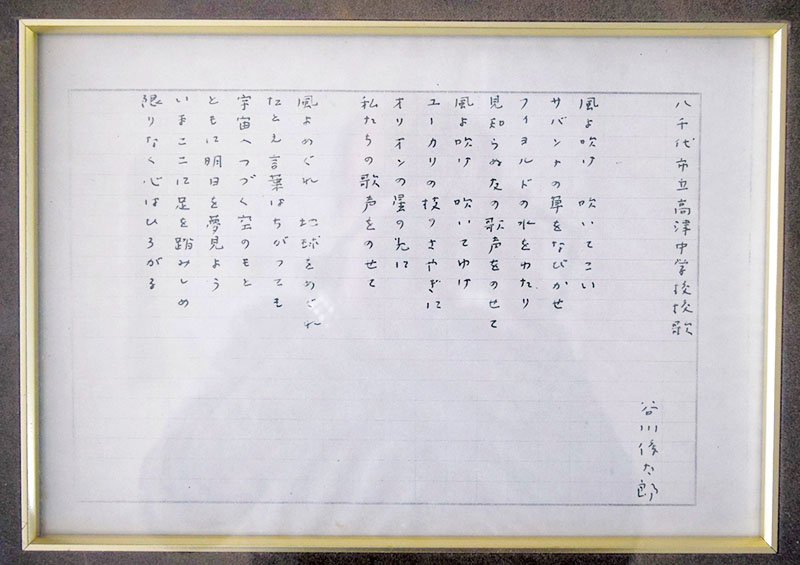 八千代市立高津中学校校歌
谷川俊太郎
風よ吹け　吹いてこい
サバンナの草をなびかせ
フィヨルドの水をわたり
見知らぬ友の歌声をのせて
風よ吹け　吹いてゆけ
ユーカリの枝のさやぎに
オリオンの星の光に
私たちの歌声をのせて
風よめぐれ　地球をめぐれ
たとえ言葉はちがっても
宇宙へつづく空のもと
ともに明日を夢見よう
いまここに足を踏みしめ
限りなく心はひろがる